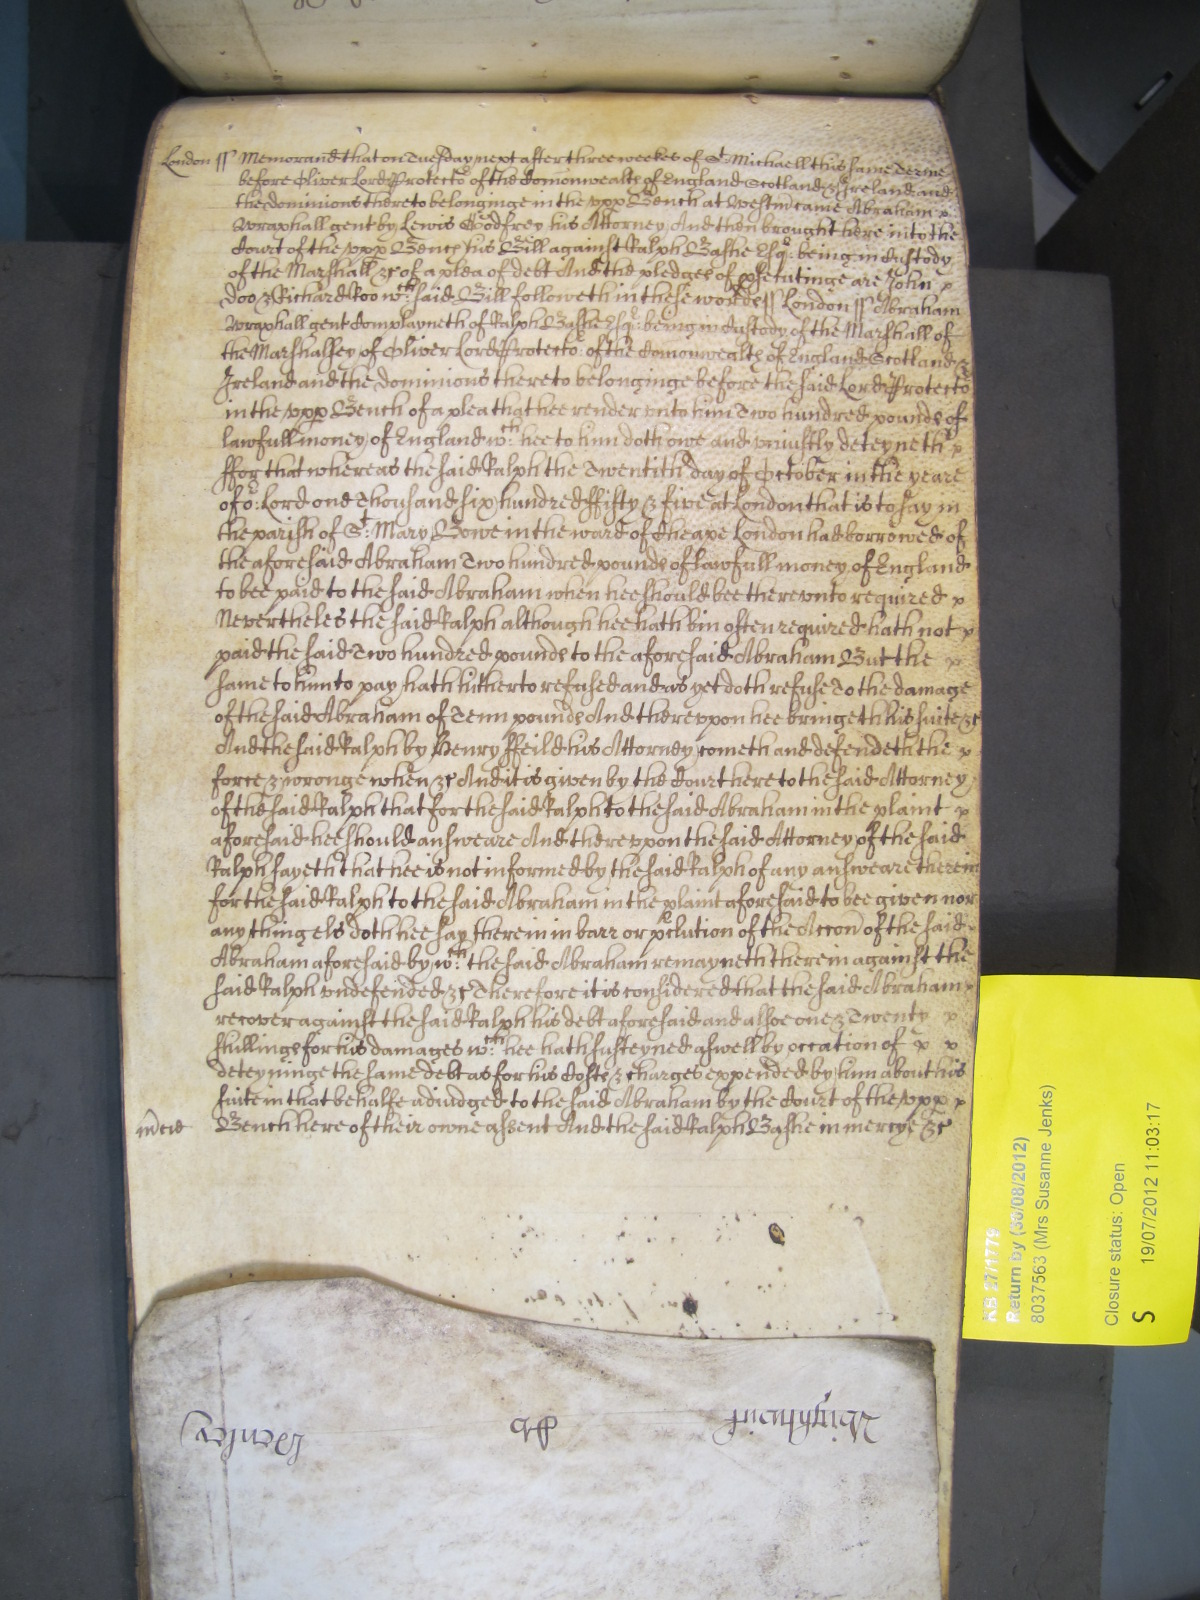 London ss Memorand that on Tuesday next after three weekes of St Michaell this same Terme
before Oliver Lord Protector of the Comonwealth of England Scotland & Ireland and
the dominions thereto belonginge in the upp Bench at Westm came Abraham x
Wraxhall gent by Lewis Godfrey his Attorney And then brought here into the
Court of the upp Bench his Bill against Ralph Bashe Esqr being in Custody
of the Marshall &c of a plea of debt And the pledges of psecutinge are John x
Doo & Richard Roo wch said Bill followeth in these words ss London ss Abraham
Wraxhall gent Complayneth of Ralph Bashe Esqr being in Custody of the Marshall of
the Marshalsey of Oliver Lord Protector of the Comonwealth of England Scotland &
Ireland and the dominions thereto belonginge before the said Lord Protector
in the upp Bench of a plea that hee render unto him Two hundred pounds of
lawfull money of England wch hee to him doth owe and uniustly deteyneth x
ffor that whereas the said Ralph the Twentith day of October in the yeare
of or Lord one Thousand six hundred ffifty & five at London that is to say in
the parish of St Mary Bowe in the ward of Cheape London had borrowed of
the aforesaid Abraham Two hundred pounds of lawfull money of England
to bee paid to the said Abraham when hee should bee thereunto required x
Nevertheles the said Ralph although hee hath bin often required hath not x
paid the said Two hundred pounds to the aforesaid Abraham But the x
same to him to pay hath hitherto refused and as yet doth refuse To the damage
of the said Abraham of Tenn pounds And thereuppon hee bringeth his suite &c
And the said Ralph by Henry ffeild his Attorney cometh and defendeth the x
force & wronge when &c And it is given by the Court here to the said Attorney
of the said Ralph that for the said Ralph to the said Abraham in the plaint x
aforesaid hee should answeare And thereuppon the said Attorney of the said
Ralph sayeth that hee is not informed by the said Ralph of any answeare therein
for the said Ralph to the said Abraham in the plaint aforesaid to bee given nor
any thing els doth hee say therein in barr or pclution of the Accon of the said
Abraham aforesaid by wch the said Abraham remayneth therein against the
said Ralph undefended &c Therefore it is considered that the said Abraham
recover against the said Ralph his debt aforesaid and alsoe one & Twenty x
shillings for his damages wch hee hath susteyned aswell by occation of x x
deteyninge the same debt as for his Costs & charges expended by him about his
suite in that behalfe adiudged to the said Abraham by the Court of the upp x
mcie Bench here of their owne assent And the said Ralph Bashe in mercye &c
KB 27/1779
Return by (30/08/2012)
8037563 (Mrs Susanne Jenks)
Closure status: Open
S 19/07/2012 11:03:17